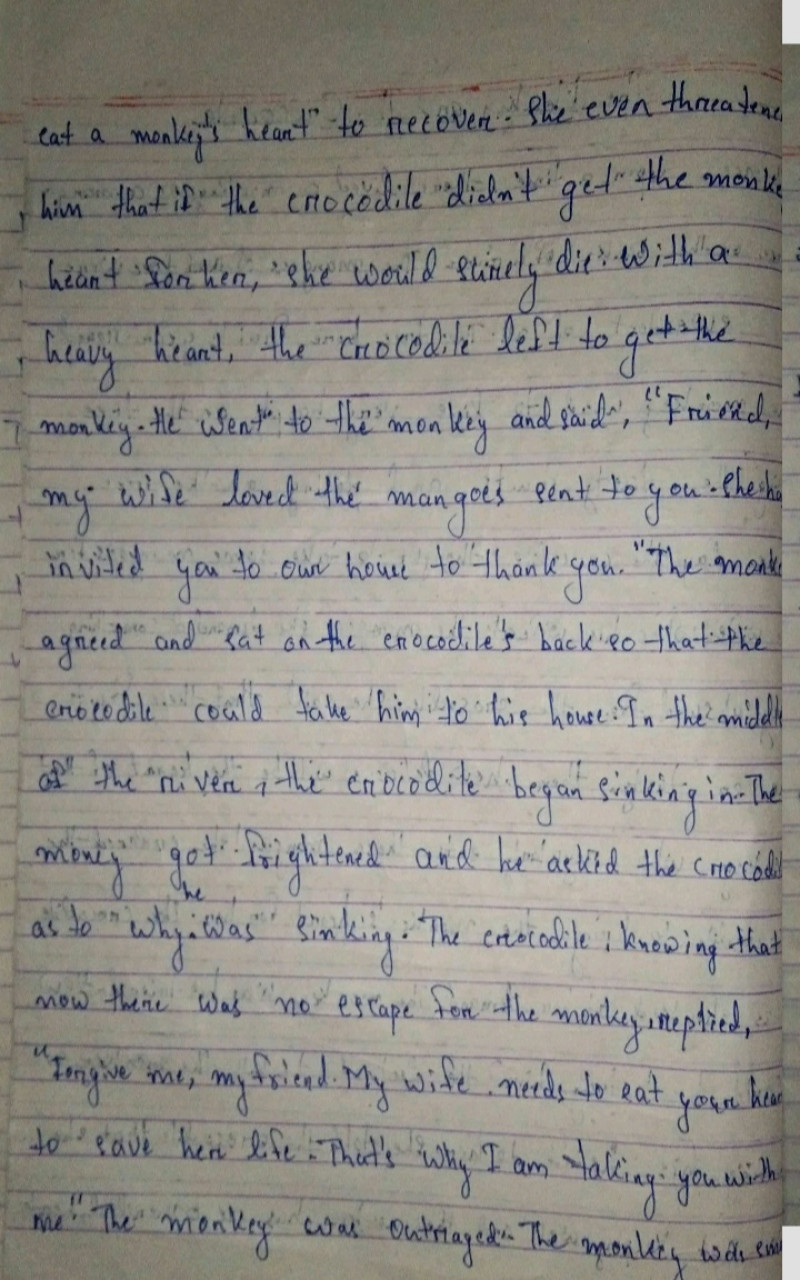 eat a monkey's heart to recover. She even threatene
him that if the crocodile didn't get the monke
heart for her, she would surely die. With a
heavy heart, the crocodile left to get the
monkey. He went to the monkey and said, "Friend,
my wife loved the mangoes sent to you. She ha
invited you to our house to thank you." The monk
agreed and sat on the crocodile's back so that the
crocodile could take him to his house. In the middl
of the river, the crocodile began sinking in. The
money got frightened and he asked the crocodil
as to why he was sinking. The crocodile, knowing that
now there was no escape for the monkey, replied,
"Forgive me, my friend. My wife needs to eat your hear
to save her life. That's why I am taking you with
me" The monkey was outraged. The monkey was